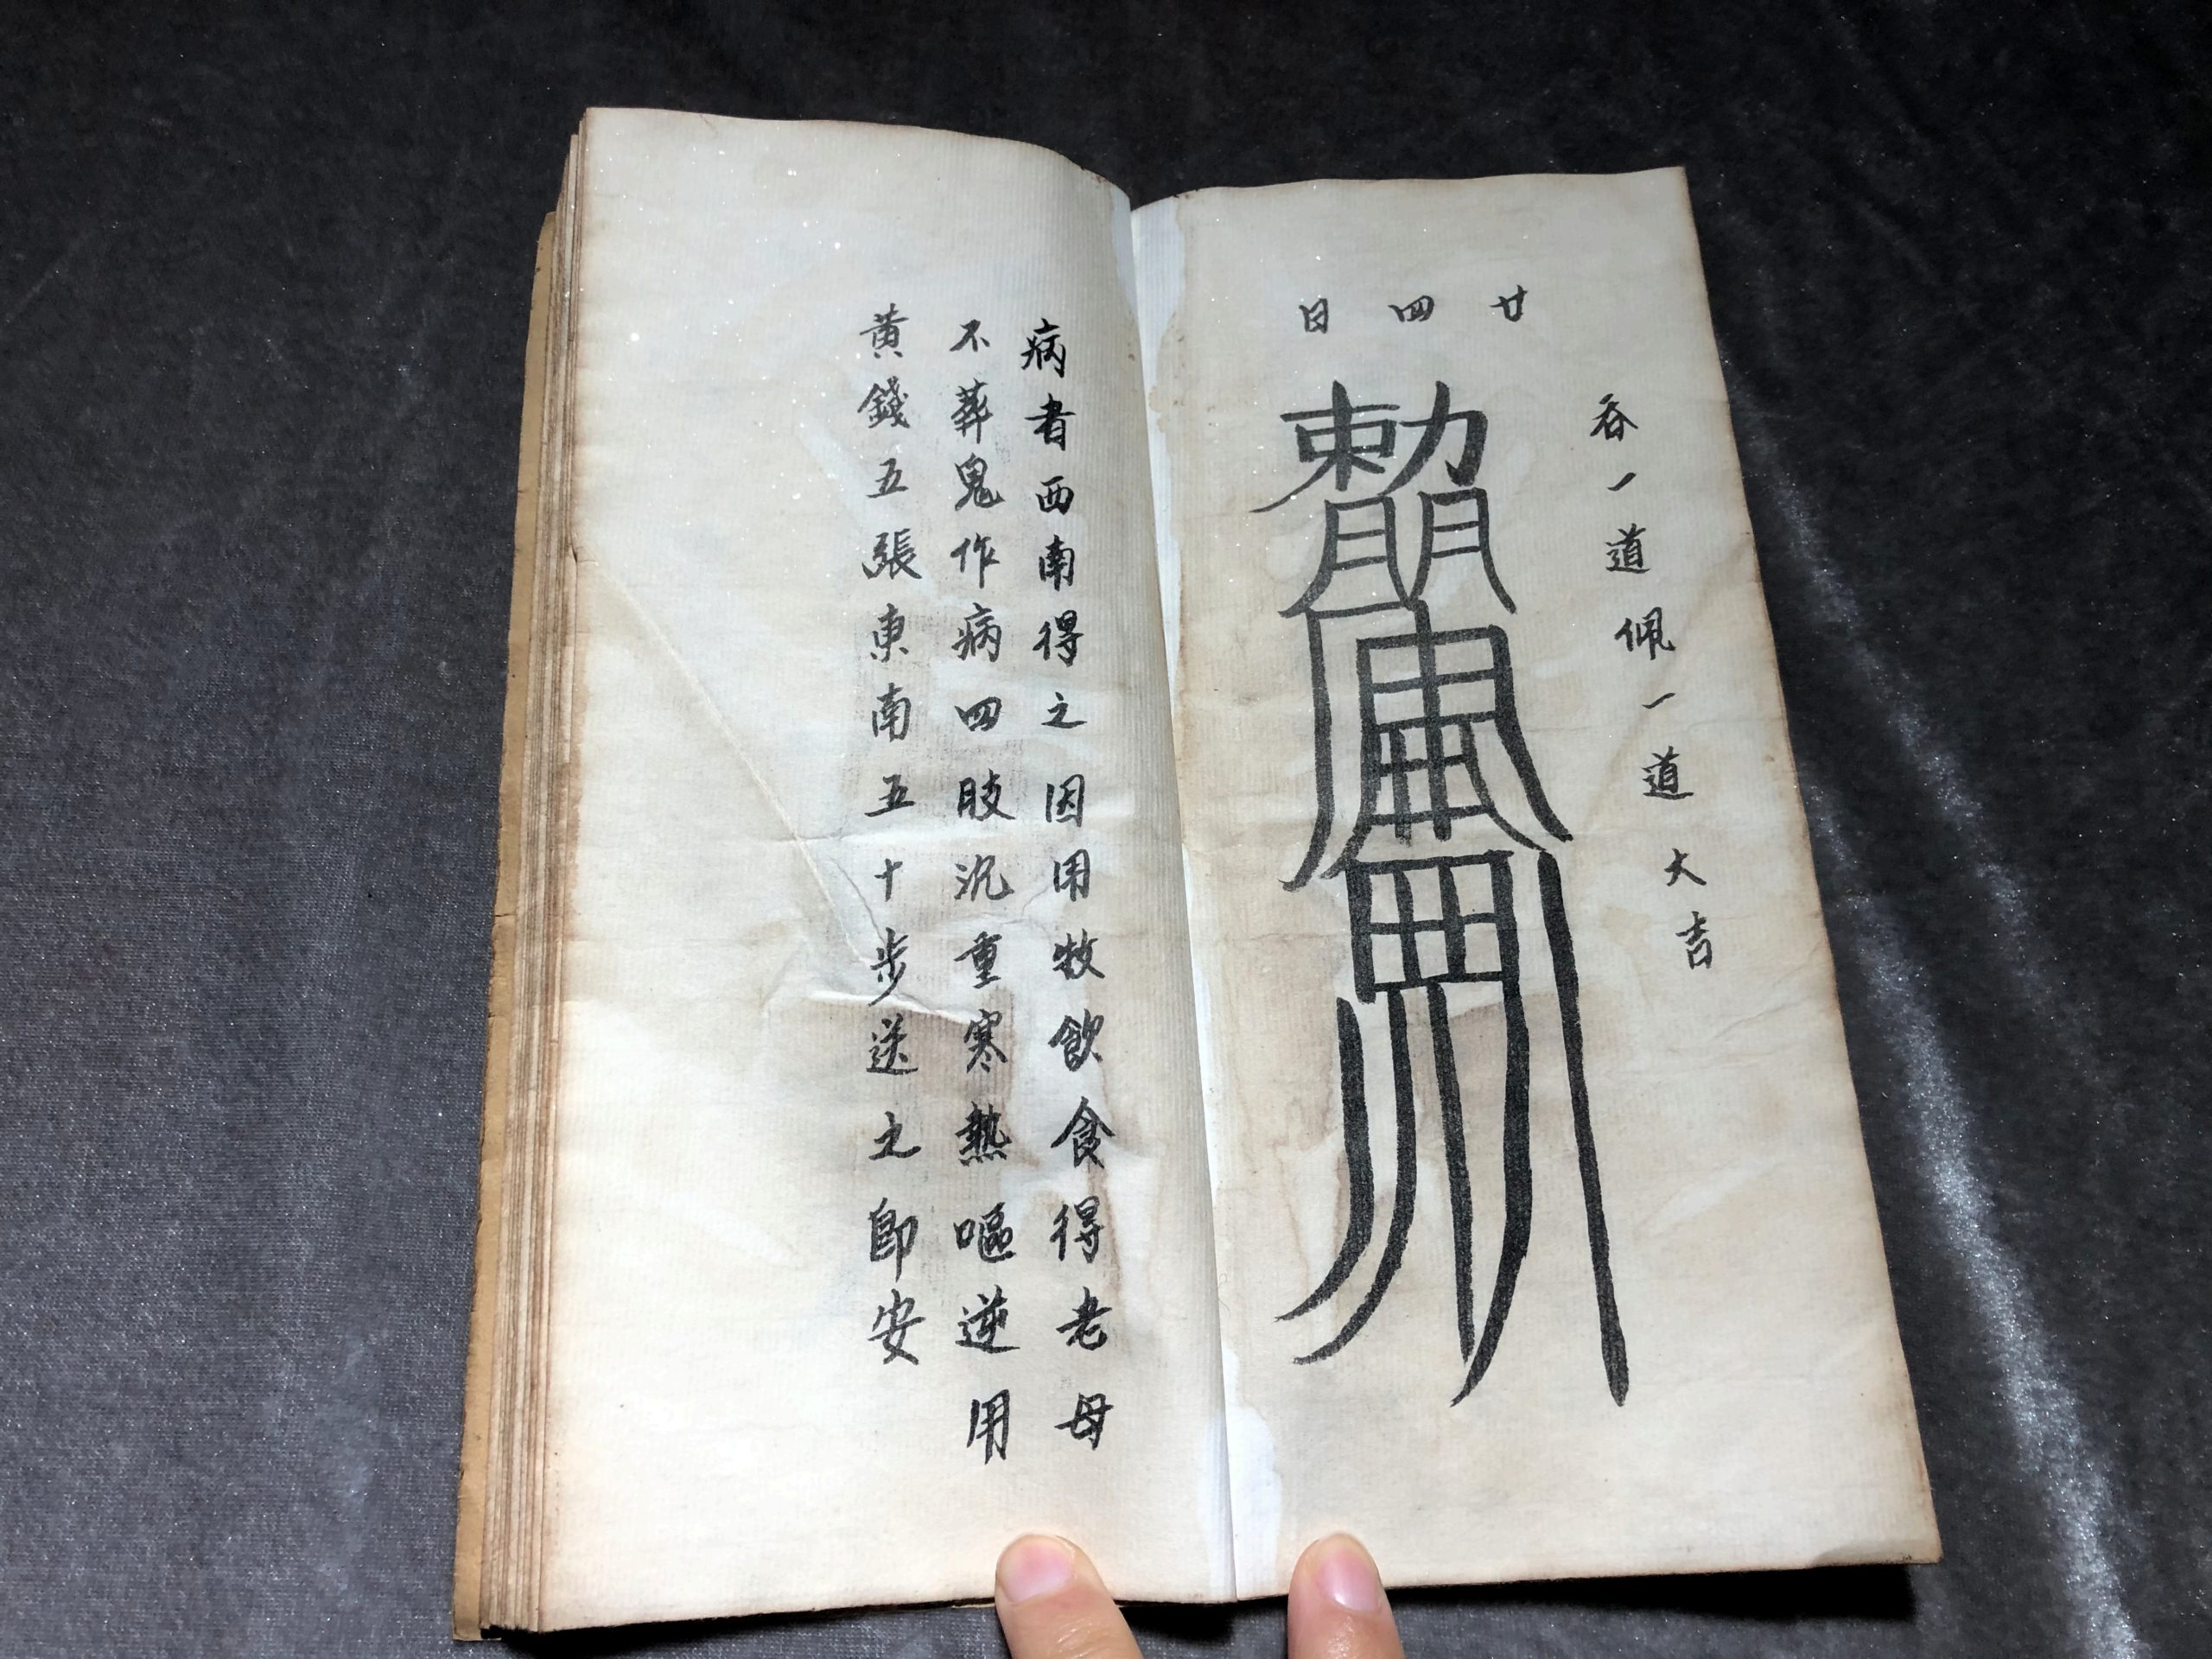 廿四日
吞一道佩一道大吉
勅
病者西南得之因用牧飲食得老母
不葬鬼作病四肢沉重寒熱嘔逆用
黃錢五張東南五十步送之即安